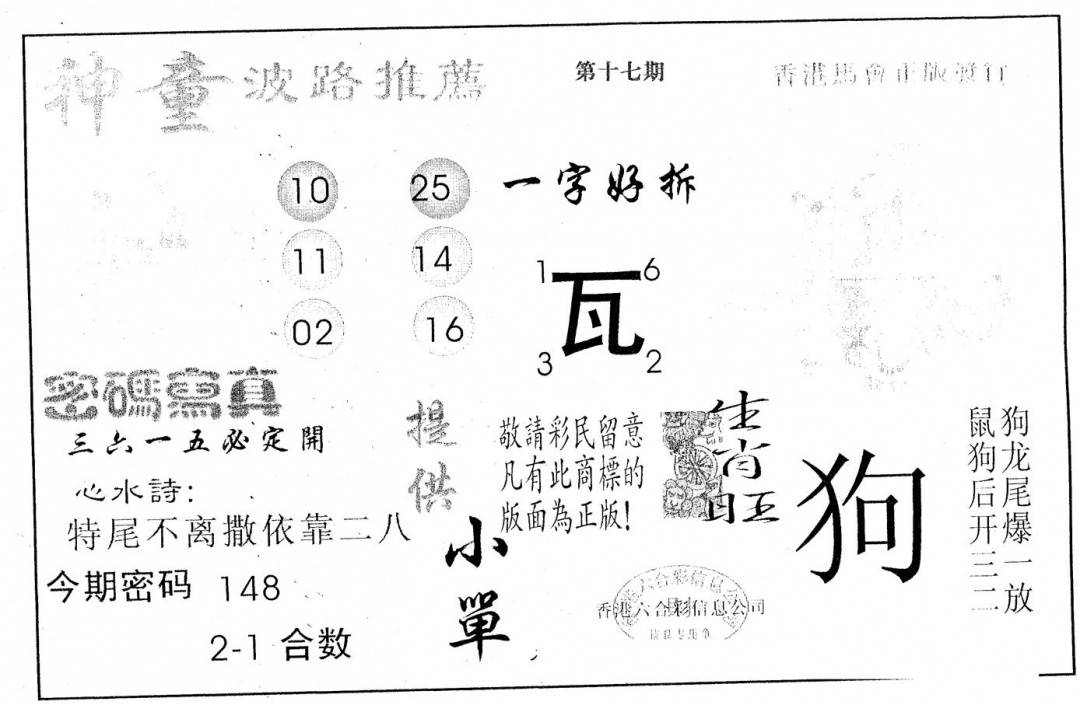 神童波路推薦
第十七期
香港馬會正版發行
10 25
11 14
02 16
一字好拆
1 6
瓦
3 2
密碼寫真
三六一五必定開
心水詩:
特尾不离撒依靠二八
今期密码 148
2-1 合数
提供
小單
敬請彩民留意
凡有此商標的
版面為正版!
生肖旺
狗
狗龙尾爆一放
鼠狗后开三二
香港六合彩信息公司